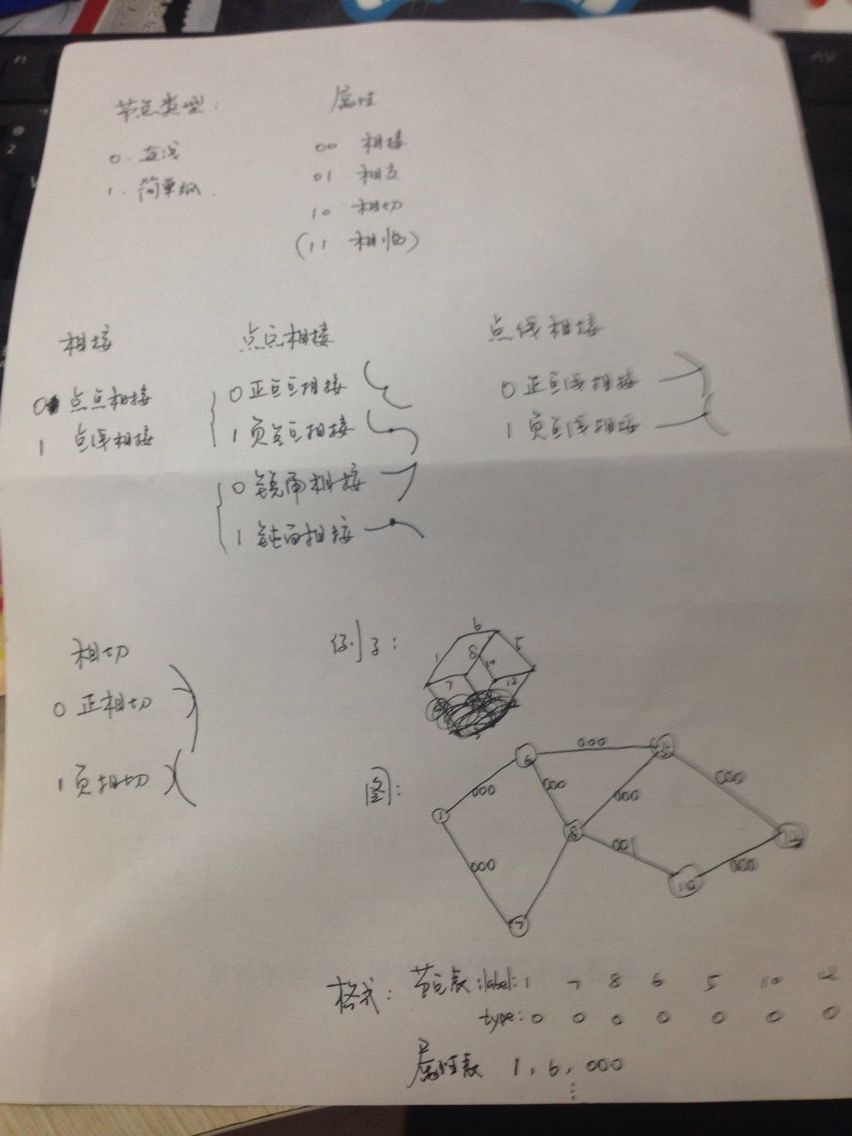 节点类型:
属性
0. 直线
1. 简单弧.
00 相接
01 相交
10 相切
(11 相临)
相接
0 点点相接
1 点线相接
点点相接
0 正点点相接
1 负点点相接
0 锐角相接
1 钝角相接
点线相接
0 正点线相接
1 负点线相接
相切
0 正相切
1 负相切
例子:
6
1
8
5
10
7
12
图:
6 000 5
000 000 000 000
1 8
000 001 12
10 000
7
格式: 节点表:label: 1 7 8 6 5 10 12
type: 0 0 0 0 0 0 0
属性表 1, 6, 000
⋮